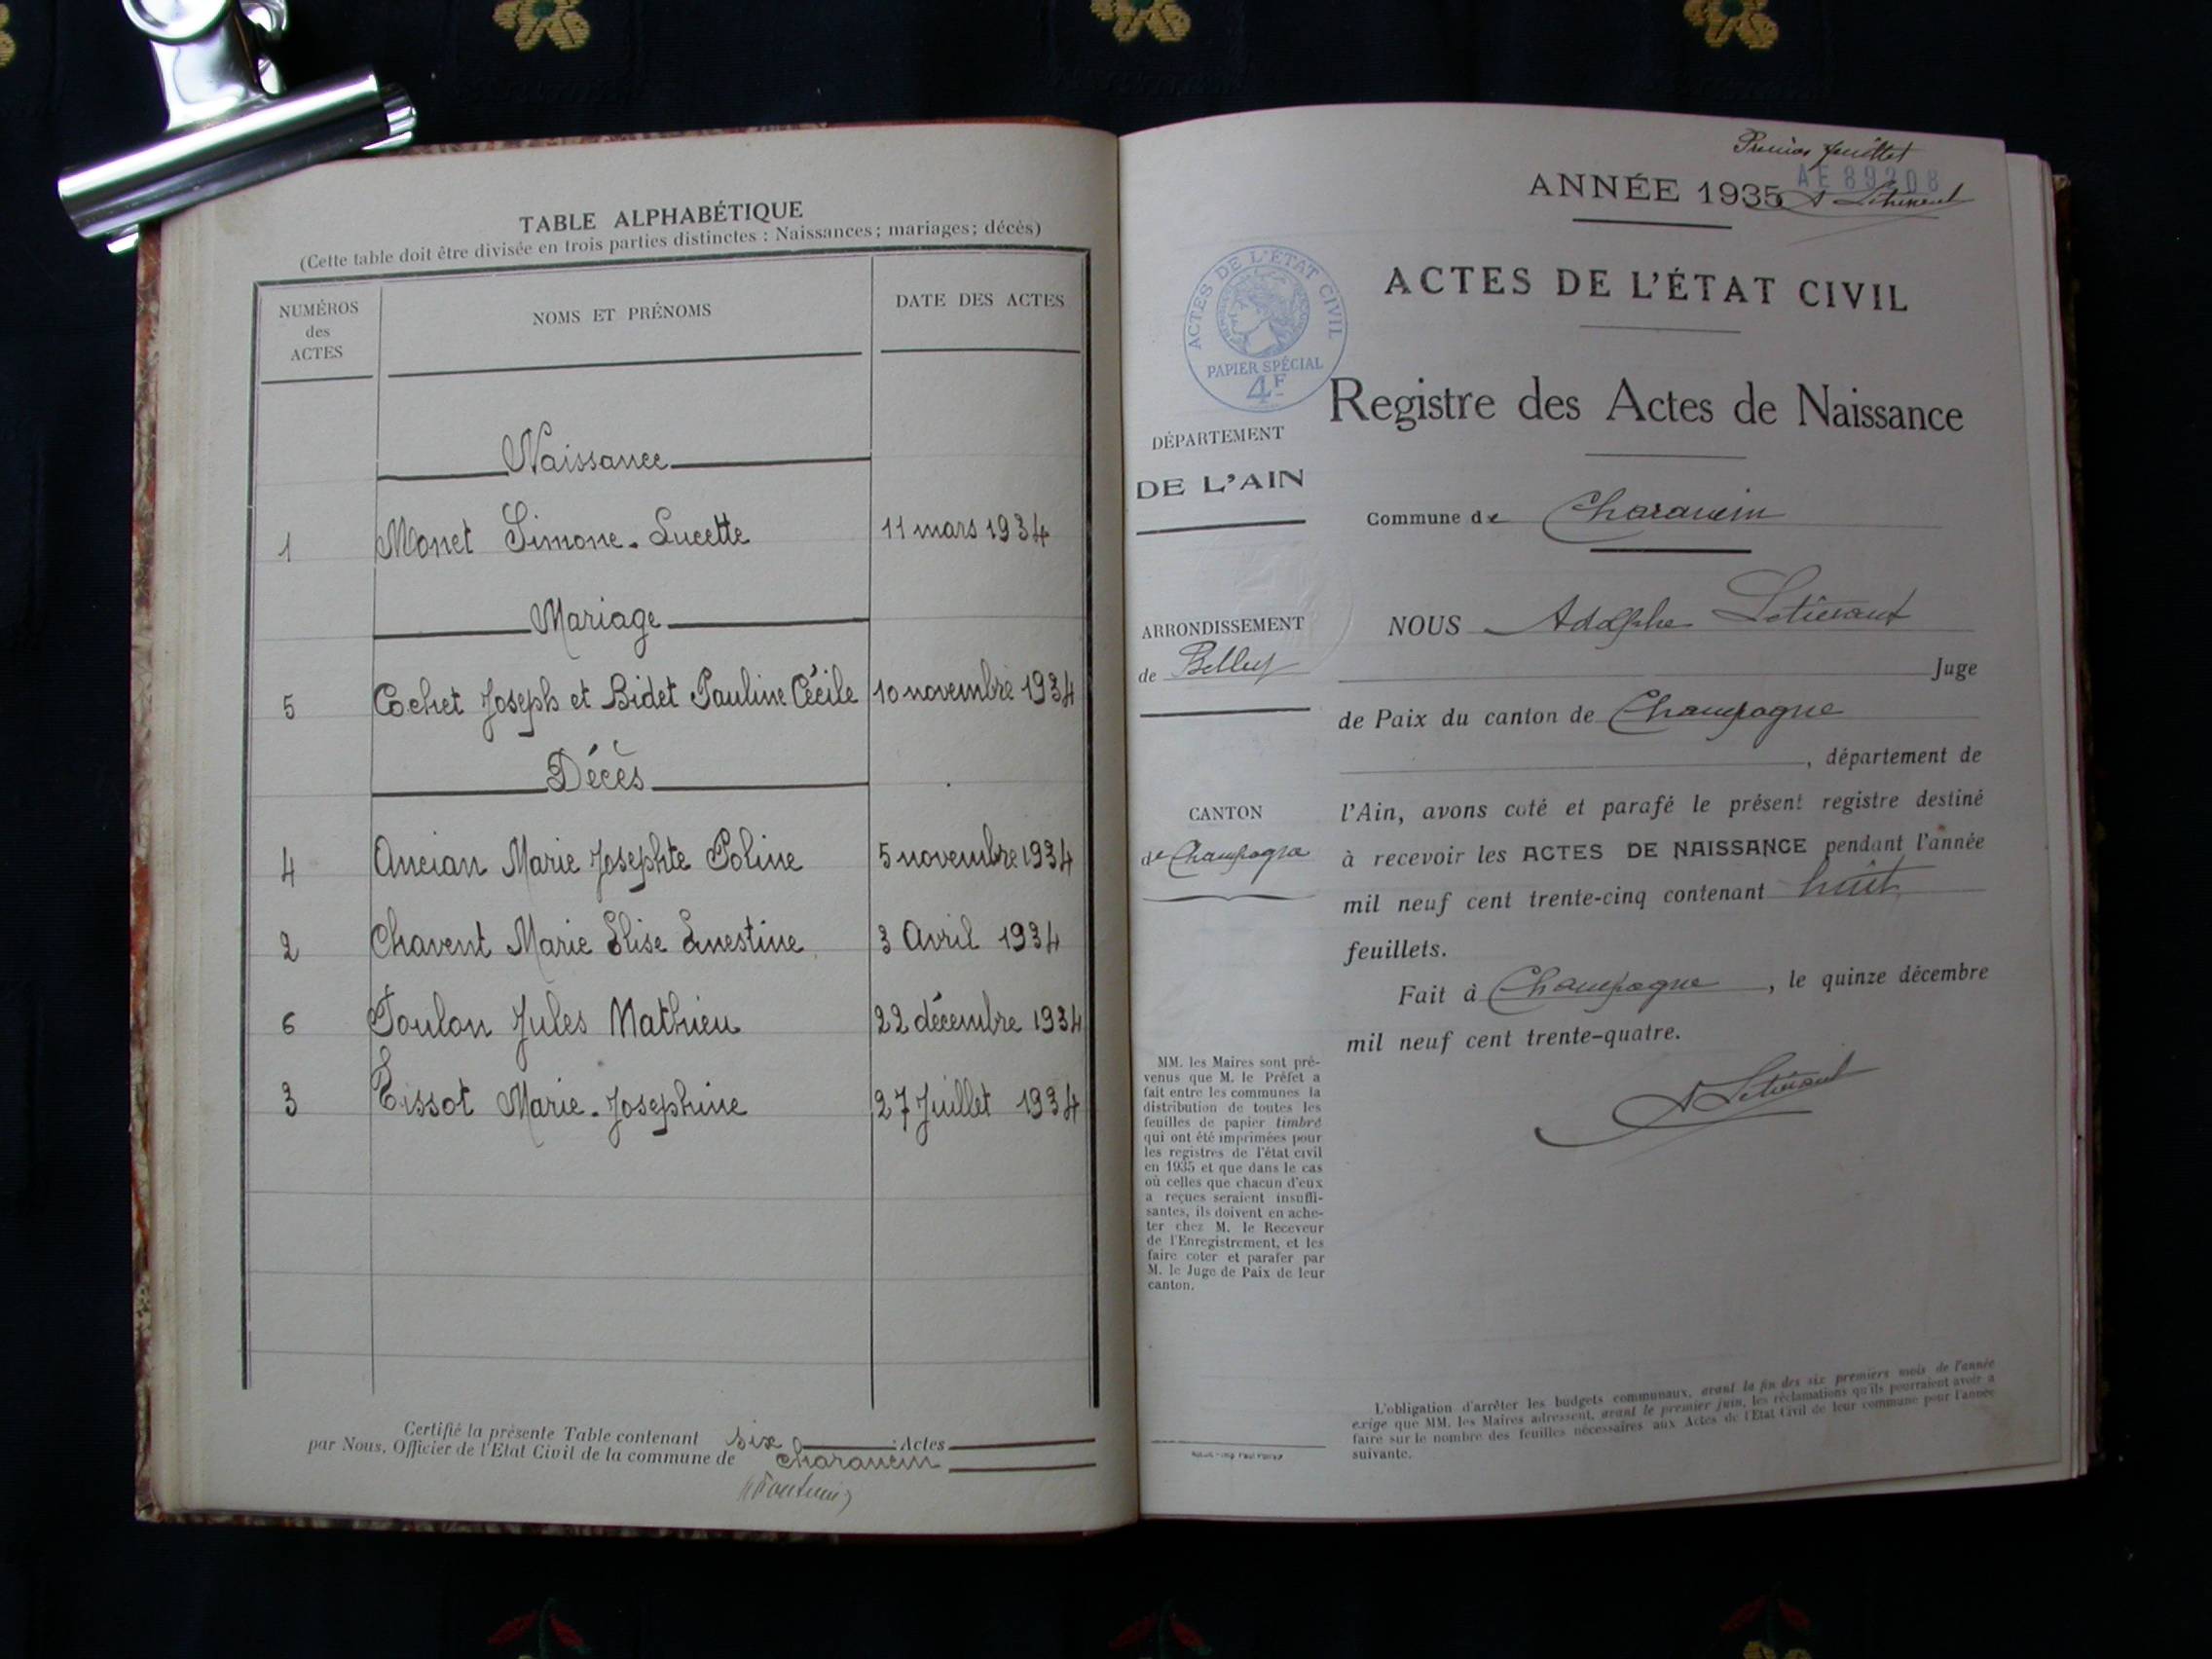 TABLE ALPHABÉTIQUE
(Cette table doit être divisée en trois parties distinctes : Naissances; mariages; décès)
NUMÉROS des ACTES
NOMS ET PRÉNOMS
DATE DES ACTES
Naissance
1 Monet Simone-Lucette 11 mars 1934
Mariage
5 Cochet Joseph et Bidet Pauline Cécile 10 novembre 1934
Décès
4 Ancian Marie Josephte Poline 5 novembre 1934
2 Chavent Marie Elise Ernestine 3 Avril 1934
6 Poulon Jules Mathieu 22 décembre 1934
3 Tissot Marie-Josephine 27 Juillet 1934
Certifié la présente Table contenant six Actes
par Nous, Officier de l'Etat Civil de la commune de Charancin
Premier feuillet
ANNÉE 1935
AE 89208
ACTES DE L'ÉTAT CIVIL
PAPIER SPÉCIAL
4F
ACTES DE L'ÉTAT CIVIL
Registre des Actes de Naissance
DÉPARTEMENT
DE L'AIN
Commune de Charancin
ARRONDISSEMENT
de Belley
CANTON
de Champagne
NOUS Adolphe
Juge
de Paix du canton de Champagne
, département de
l'Ain, avons coté et parafé le présent registre destiné
à recevoir les ACTES DE NAISSANCE pendant l'année
mil neuf cent trente-cinq contenant huit
feuillets.
Fait à Champagne, le quinze décembre
mil neuf cent trente-quatre.
MM. les Maires sont pré-
venus que M. le Préfet a
fait entre les communes la
distribution de toutes les
feuilles de papier timbré
qui ont été imprimées pour
les registres de l'état civil
en 1935 et que dans le cas
où celles que chacun d'eux
a reçues seraient insuffi-
santes, ils doivent en ache-
ter chez M. le Receveur
de l'Enregistrement, et les
faire coter et parafer par
M. le Juge de Paix de leur
canton.
L'obligation d'arrêter les budgets communaux, avant la fin des six premiers mois de l'année
exige que MM. les Maires adressent, avant le premier juin, les réclamations qu'ils pourraient avoir à
faire sur le nombre des feuilles nécessaires aux Actes de l'Etat Civil de leur commune pour l'année
suivante.